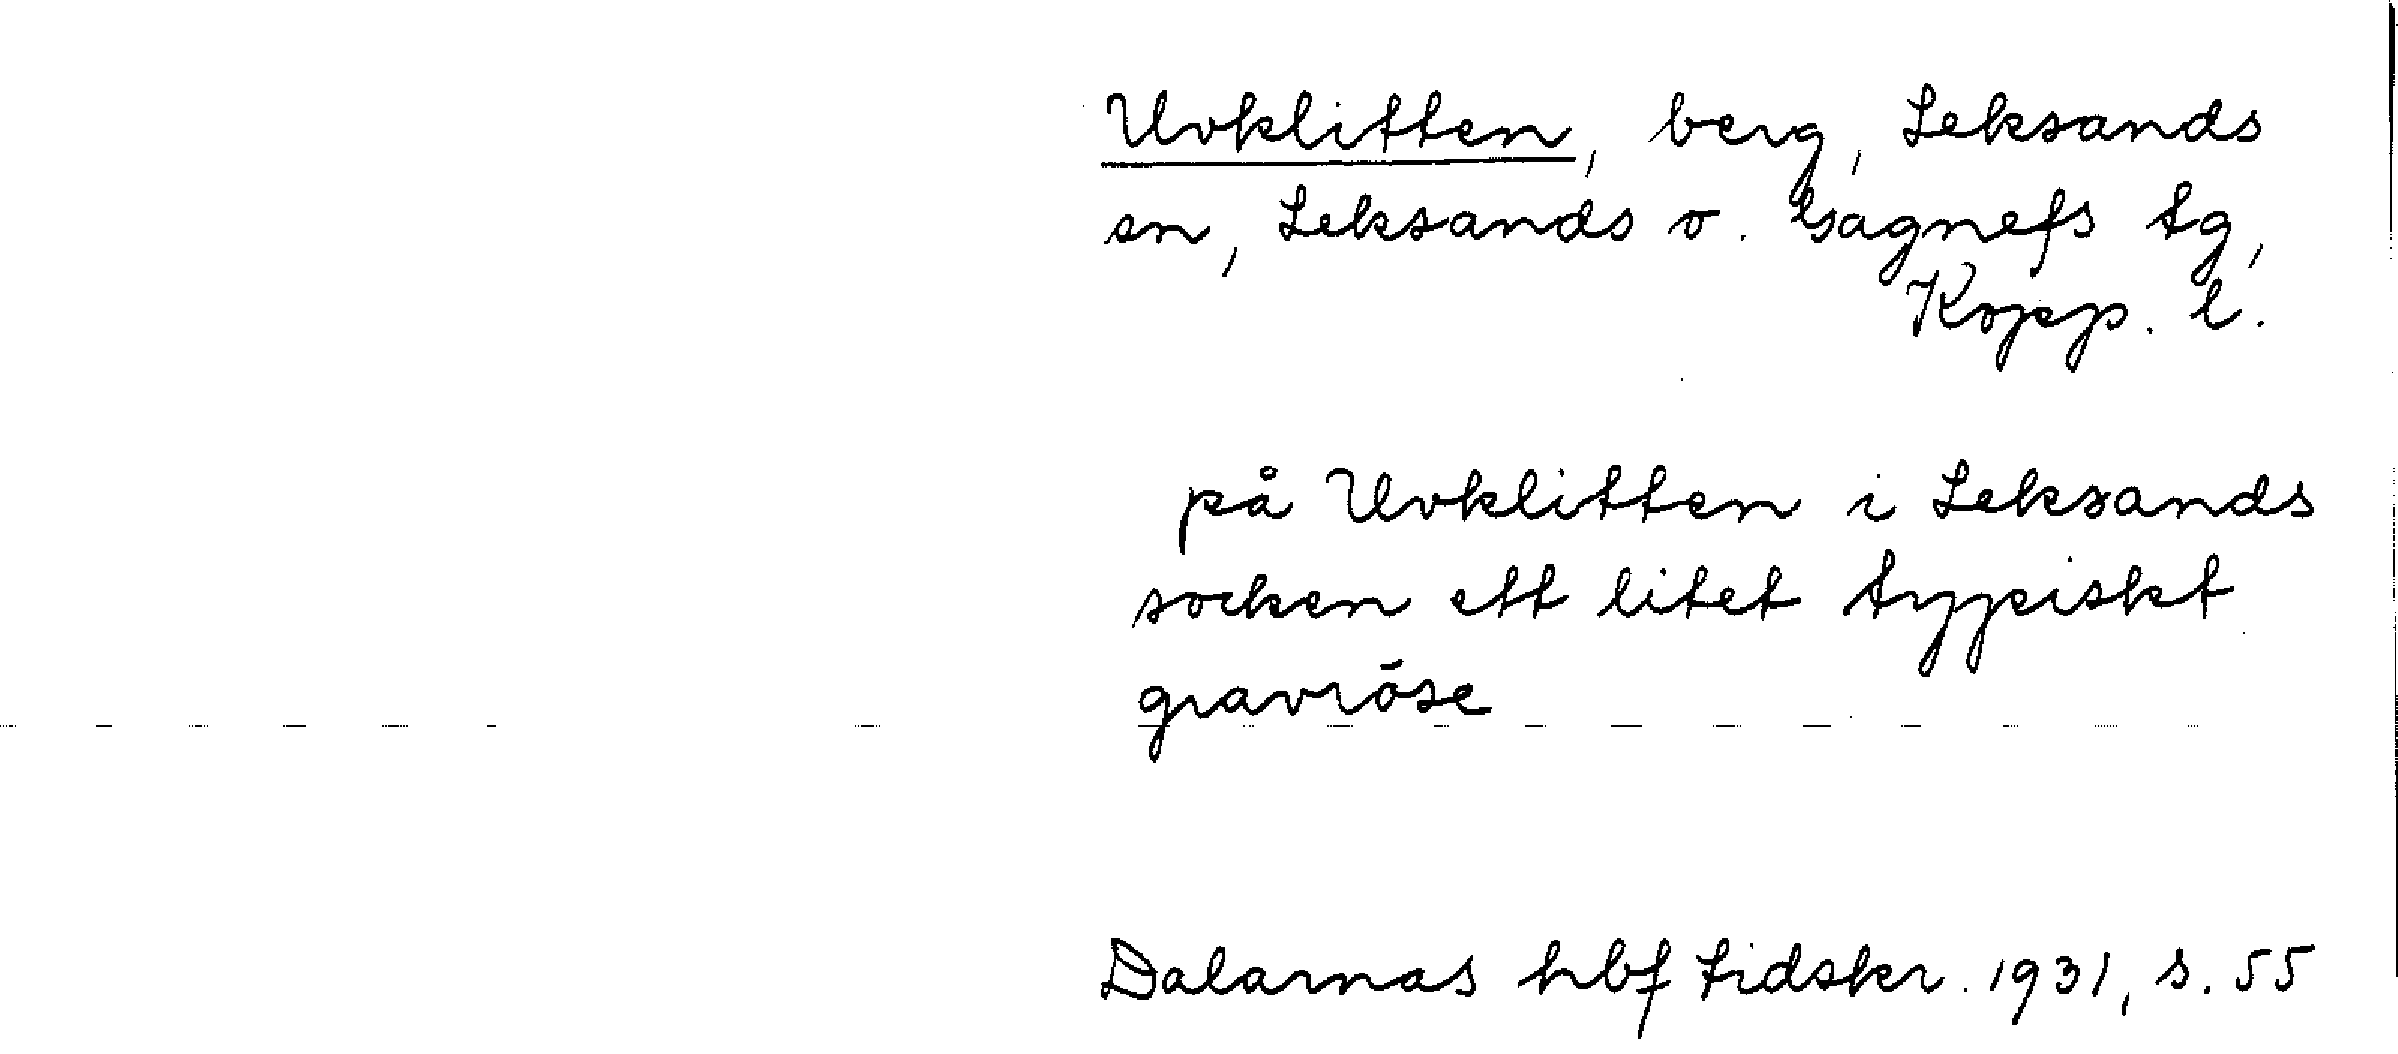 Uvklitten, berg, Leksands
sn, Leksands o. Gagnefs tg,
Kopp. l.
på Uvklitten i Leksands
socken ett litet typiskt
gravröse
Dalarnas hbf tidskr. 1931, s. 55